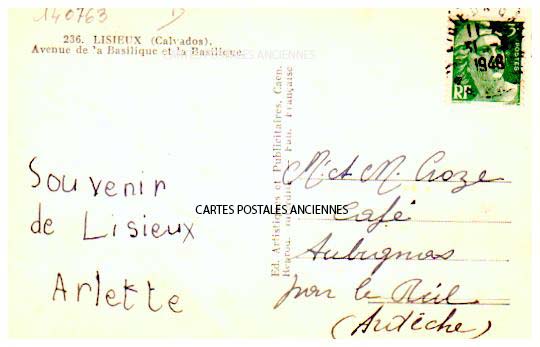 140763
236. LISIEUX (Calvados).
Avenue de la Basilique et la Basilique.
CARTES POSTALES ANCIENNES
Souvenir
de Lisieux
Arlette
CARTES POSTALES ANCIENNES
Ed. Artistiques et Publicitaires, Caen.
Fab. Française
M. et M. Croze
Café
Aubignas
par le Teil
(Ardèche)
11
31
1948
RF